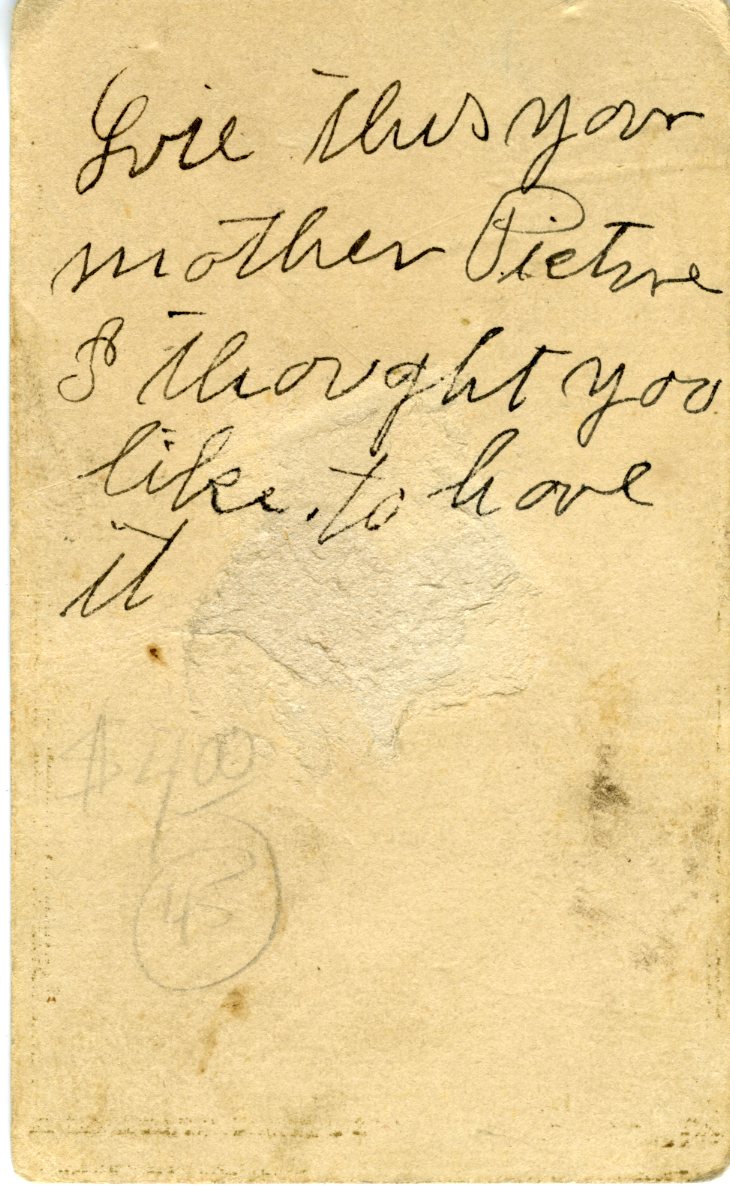 this your
mother Picture
I thought you
like to have
it
$4.00
45